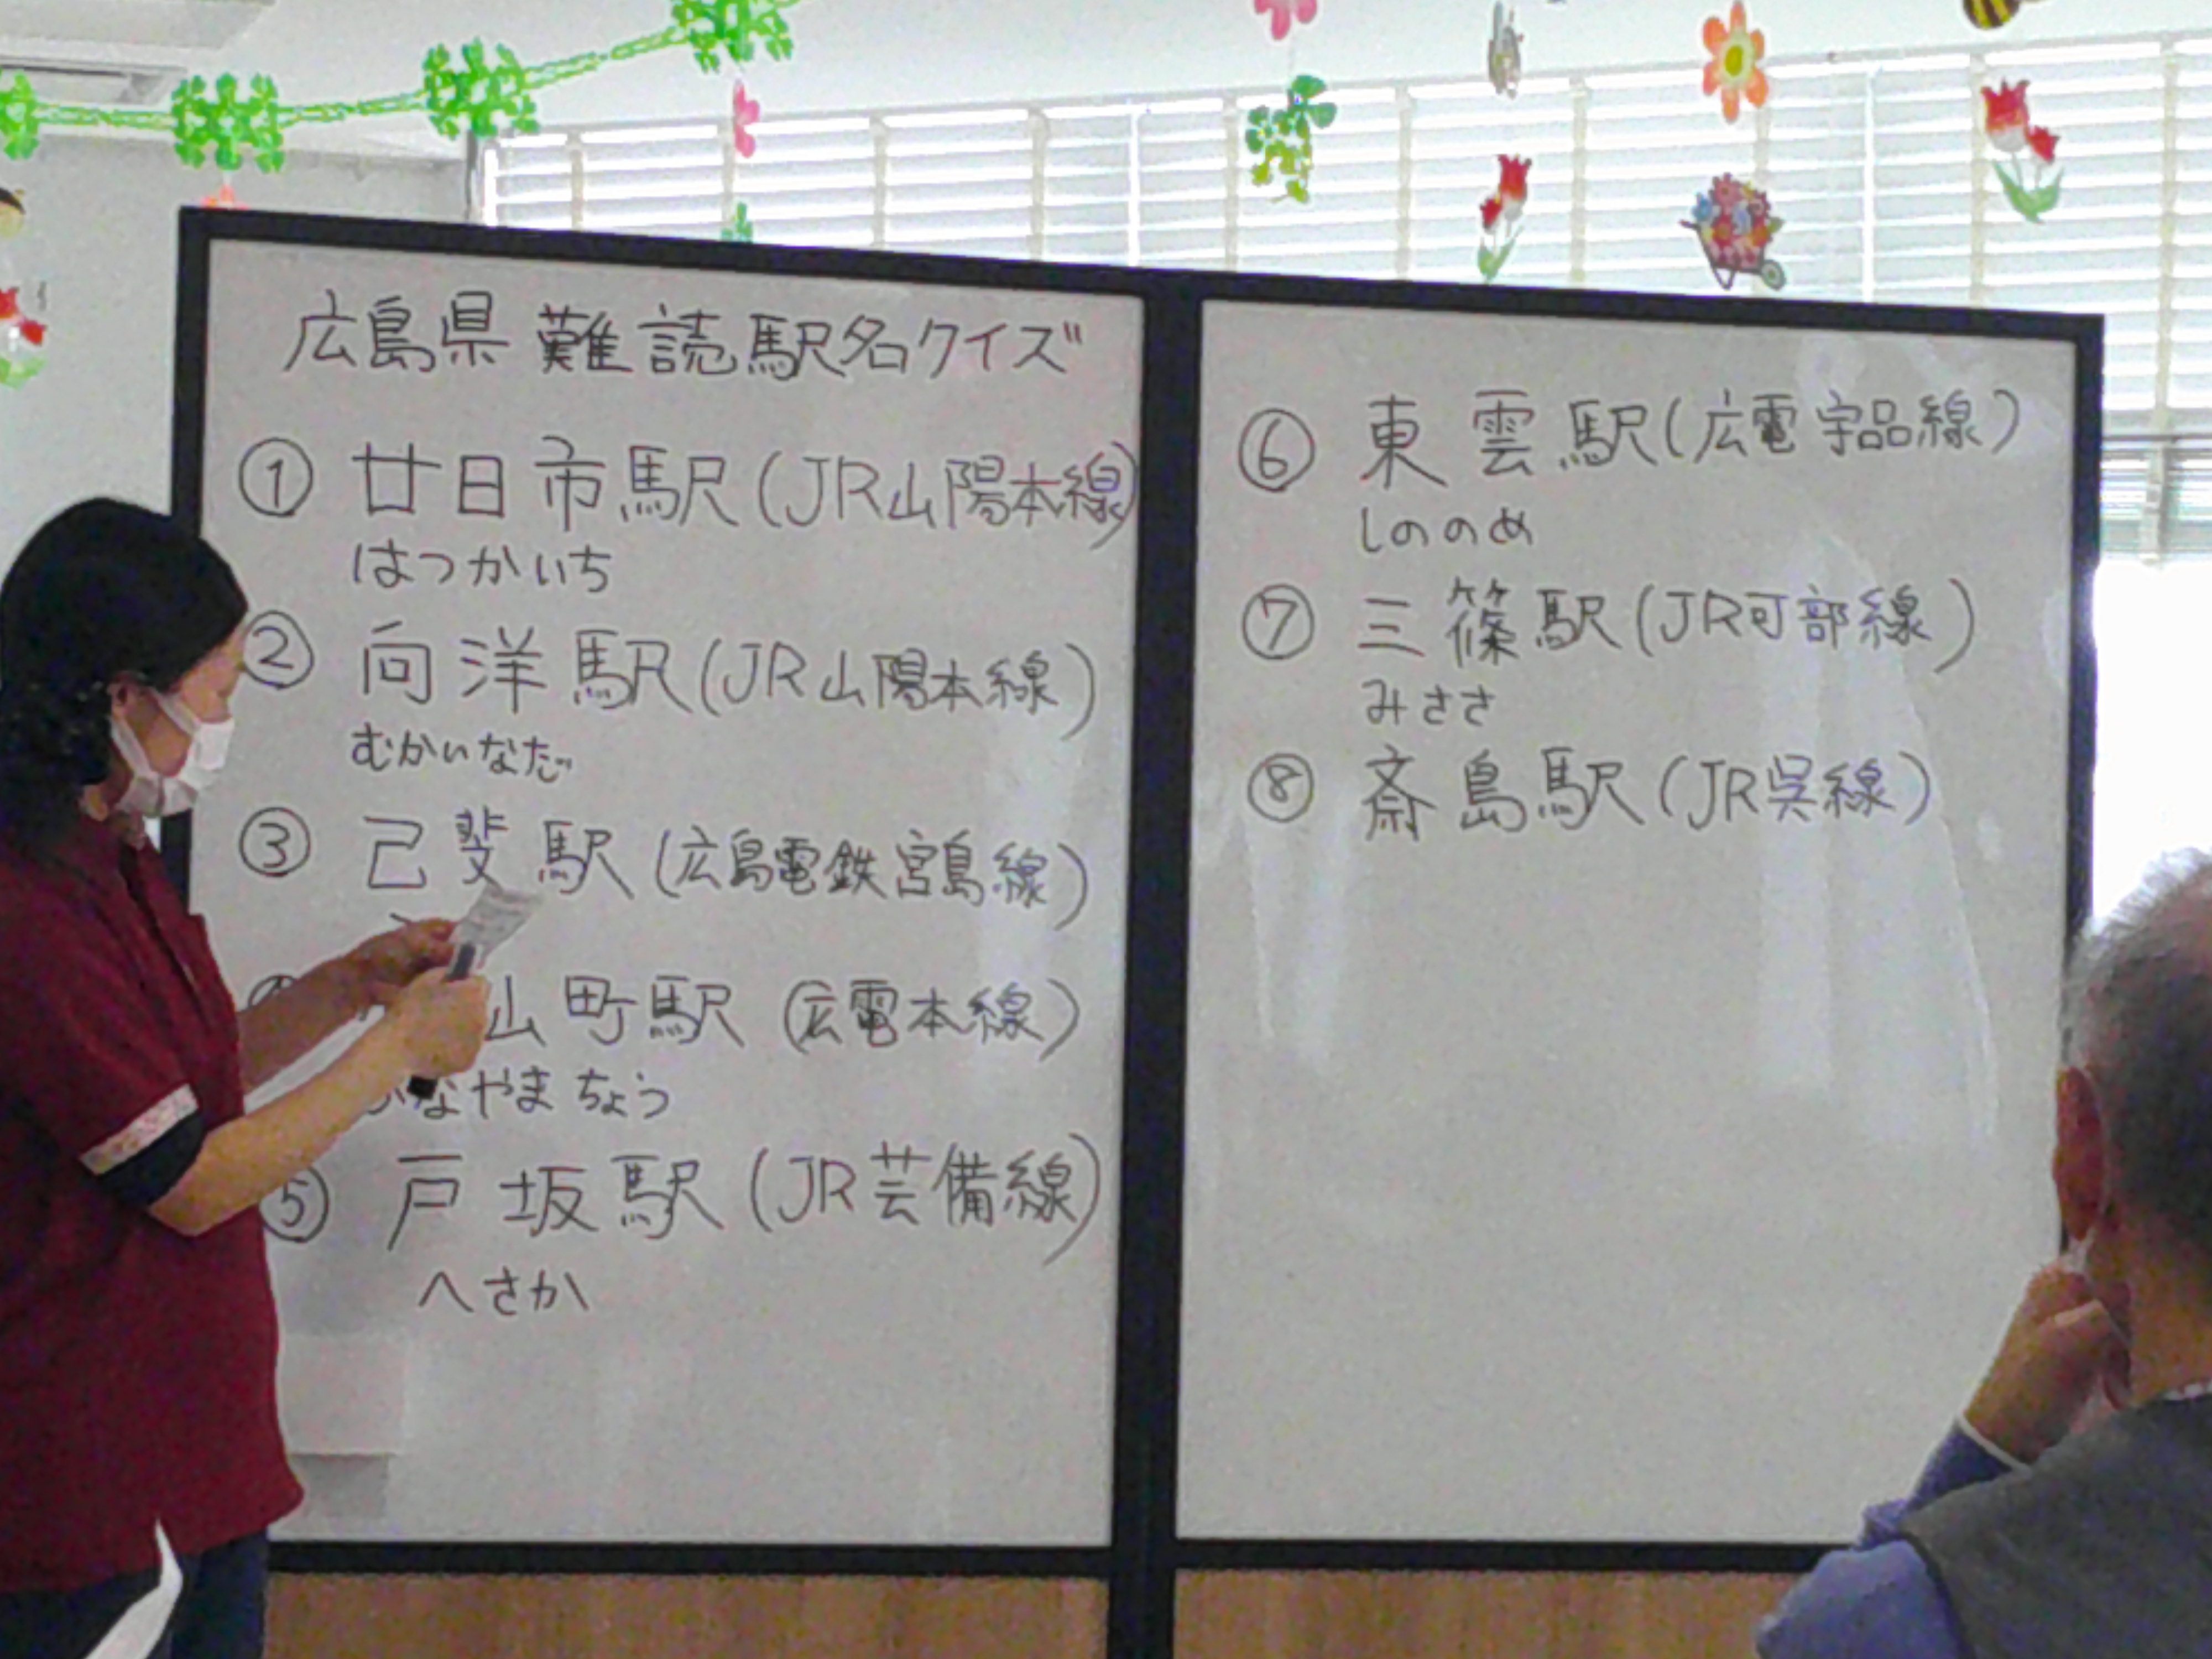 広島県 難読駅名クイズ
① 廿日市駅(JR山陽本線)
はつかいち
② 向洋駅(JR山陽本線)
むかいなだ
③ 己斐駅(広島電鉄宮島線)
山町駅 (広電本線)
なやまちょう
⑤ 戸坂駅(JR芸備線)
へさか
⑥ 東雲駅(広電宇品線)
しののめ
⑦ 三篠駅(JR可部線)
みささ
⑧ 斎島駅(JR呉線)